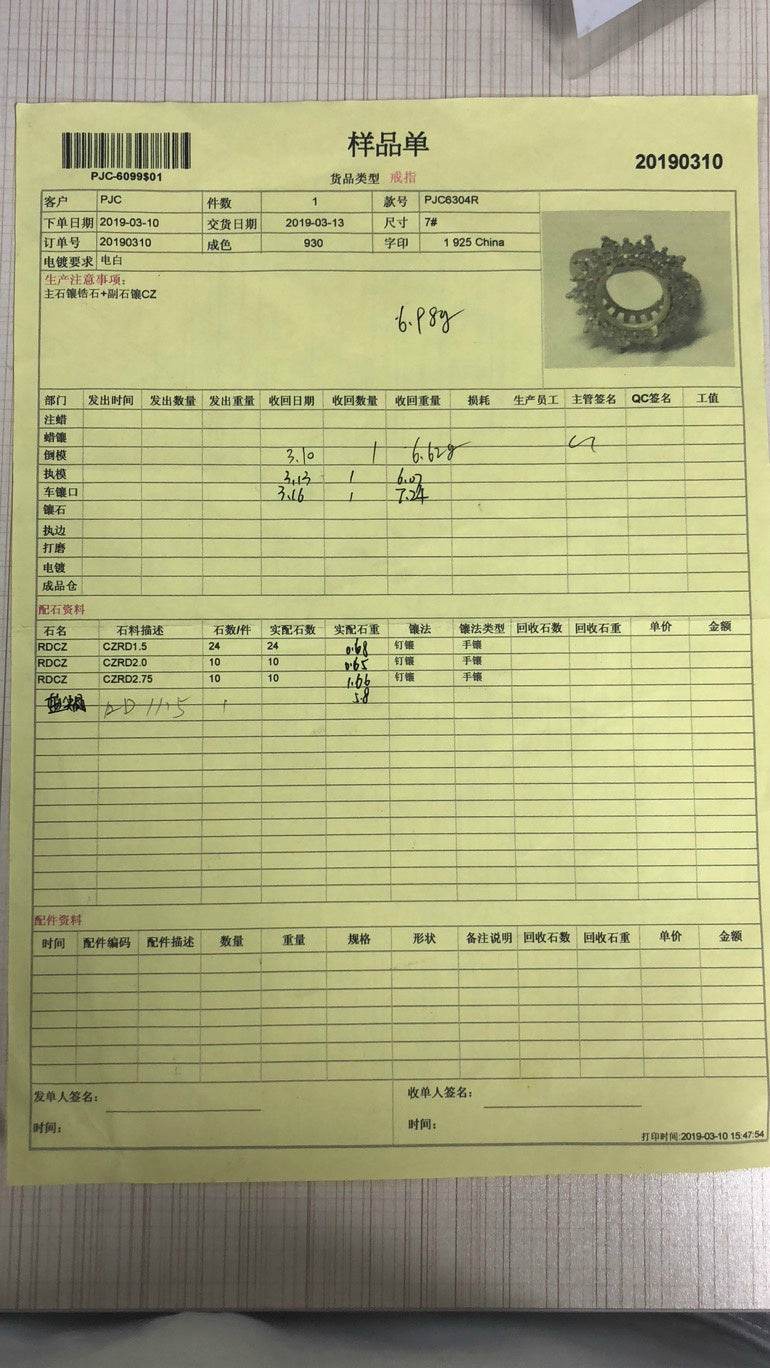 样品单
20190310
PJC-6099$01
货品类型 戒指
客户 PJC 件数 1 款号 PJC6304R
下单日期 2019-03-10 交货日期 2019-03-13 尺寸 7#
订单号 20190310 成色 930 字印 1 925 China
电镀要求 电白
生产注意事项:
主石镶锆石+副石镶CZ
6.98g
部门 发出时间 发出数量 发出重量 收回日期 收回数量 收回重量 损耗 生产员工 主管签名 QC签名 工值
注蜡
蜡镶
倒模 3.10 1 6.62g
执模 3.13 1 6.07
车镶口 3.16 1 7.24
镶石
执边
打磨
电镀
成品仓
配石资料
石名 石料描述 石数/件 实配石数 实配石重 镶法 镶法类型 回收石数 回收石重 单价 金额
RDCZ CZRD1.5 24 24 0.68 钉镶 手镶
RDCZ CZRD2.0 10 10 0.65 钉镶 手镶
RDCZ CZRD2.75 10 10 1.66 钉镶 手镶
11.5 1 5.8
配件资料
时间 配件编码 配件描述 数量 重量 规格 形状 备注说明 回收石数 回收石重 单价 金额
发单人签名: 收单人签名:
时间: 时间:
打印时间:2019-03-10 15:47:54